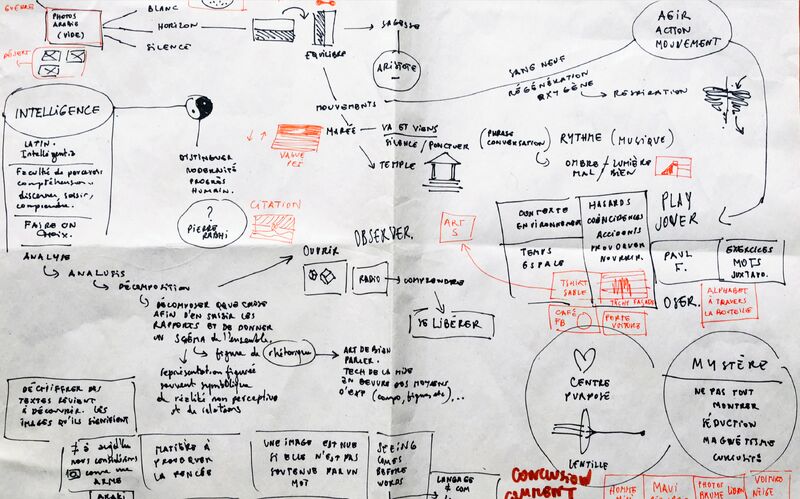 GUERRE
PHOTOS
ARABIE
(VIDE)
BLANC
HORIZON
SILENCE
DÉSERT
EQUILIBRE
SAGESSE
ARISTOTE
AGIR
ACTION
MOUVEMENT
SANG NEUF
RÉGÉNÉRATION
OXYGÈNE
RESPIRATION
MOUVEMENTS
MARÉE
VA ET VIENS
SILENCE / PONCTUER
TEMPLE
VAGUE
(PHRASE
CONVERSATION)
RYTHME (MUSIQUE)
OMBRE / LUMIÈRE
MAL / BIEN
INTELLIGENCE
LATIN.
Intelligentia
Faculté de percevoir
compréhension.
discerner, saisir,
comprendre.
FAIRE UN
CHOIX.
ANALYSE
DISTINGUER
MODERNITÉ
PROGRÈS
HUMAIN.
?
PIERRE
RABHI
CITATION
OBSERVER.
OUVRIR
RADIO
COMPRENDRE
SE LIBÉRER
ART
S
CONTEXTE
ENVIRONNEMENT
TEMPS
ESPACE
HASARDS
COÏNCIDENCES
ACCIDENTS
PROVOQUER
NOURRIR.
PLAY
JOUER
PAUL
F.
EXERCICES
MOTS
JUXTAPO.
OSER.
ALPHABET
À TRAVERS
LA BOUTEILLE
TSHIRT
SABLE
YACHT FAÇADE
CAFÉ
PB
PORTE
VOITURE
ANALUSIS
DÉCOMPOSITION
DÉCOMPOSER QQUE CHOSE
AFIN D'EN SAISIR LES
RAPPORTS ET DE DONNER
UN SCHÉMA DE L'ENSEMBLE.
figure de rhétorique
ART DE BIEN
PARLER.
TECH DE LA MISE
EN OEUVRE DES MOYENS
D'EXP (compo, figures etc)...
représentation figurée
souvent symbolique
de réalité non perceptive
et de relations
CENTRE
PURPOSE
LENTILLE
MYSTÈRE
NE PAS TOUT
MONTRER
SÉDUCTION
MAGNÉTISME
CURIOSITÉ
DÉCHIFFRER DES
TEXTES REVIENT
À DÉCOUVRIR LES
IMAGES QU'ILS SIGNIFIENT
comme une
ARME
ARAKI
MATIÈRE À
PROVOQUER
LA PENSÉE
UNE IMAGE EST NUE
SI ELLE N'EST PAS
SOUTENUE PAR UN
MOT
SEEING
COMES
BEFORE
WORDS
LANGAGE
& COM
CONCLUSION
COMMENT
HOMME
MAUI
PHOTOS
BRUME
NEIGE